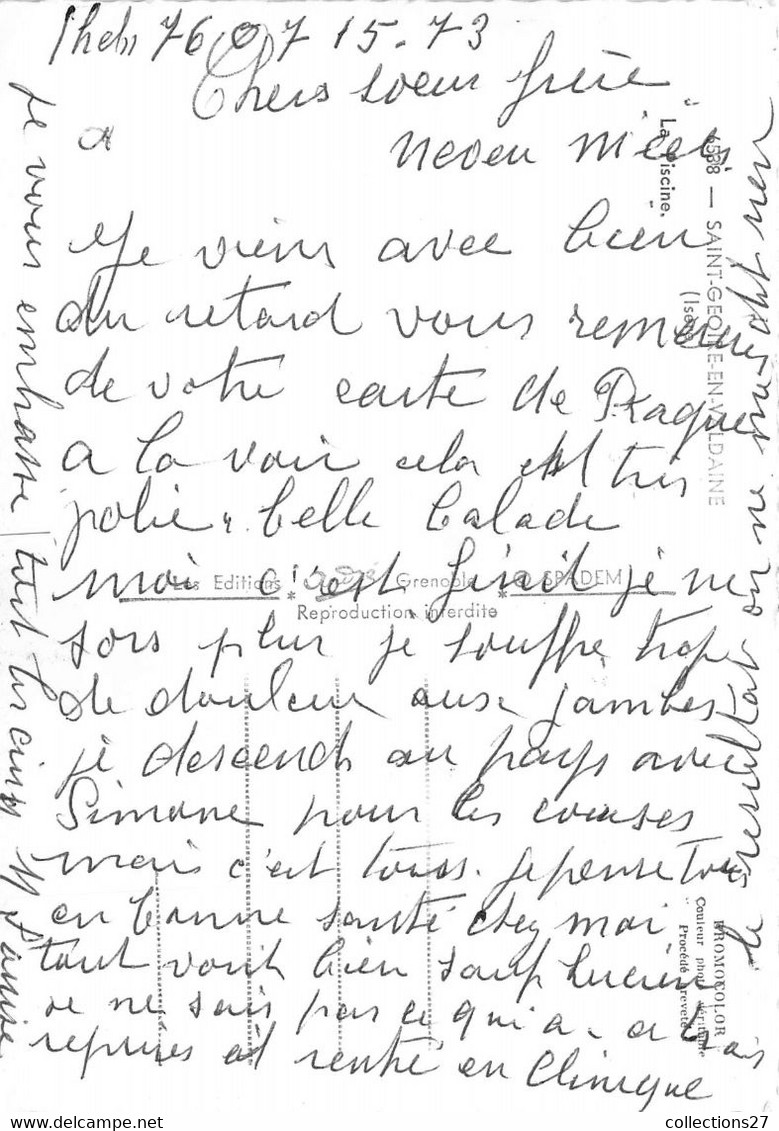 76 07 15.73
Chers soeur frère
neveu nièces
Je viens avec bien
du retard vous remercier
de votre carte de Prague
a la voir cela est très
jolie. belle balade
moi c'est finit je ne
sors plus je souffre trop
de douleur aux jambes
je descends au pays avec
Simone pour les courses
mais c'est tous. Je pense tous
en bonne santé chez moi
tout vont bien sauf Lucien
je ne sais pas ce qui a. a trois
reprises est rentré en Clinique
le resultat on ne nous dit rien
Je vous embrasse tout les cinq
6538 — SAINT-GEOIRE-EN-VALDAINE
(Isère)
La Piscine.
Les Editions Grenoble
* * © SPADEM
Reproduction interdite
PROMOCOLOR
Couleur photo véritable
Procédé breveté
collections27